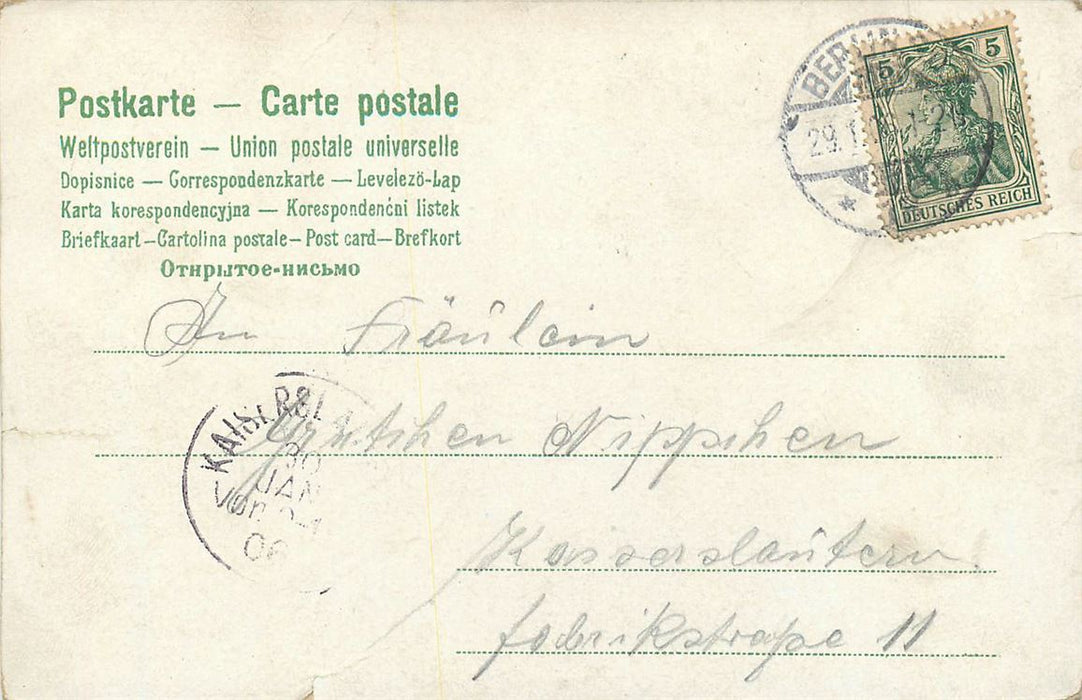 Postkarte — Carte postale
Weltpostverein — Union postale universelle
Dopisnice — Correspondenzkarte — Levelezö-Lap
Karta korespondencyjna — Korespondenčni listek
Briefkaart — Cartolina postale — Post card — Brefkort
Открытое-письмо
BERLIN
29.1
5 5
DEUTSCHES REICH
An Fräulein
Gretchen Nippchen
Kaiserslautern.
fabrikstraße 11
KAISERSL
30
JAN
06